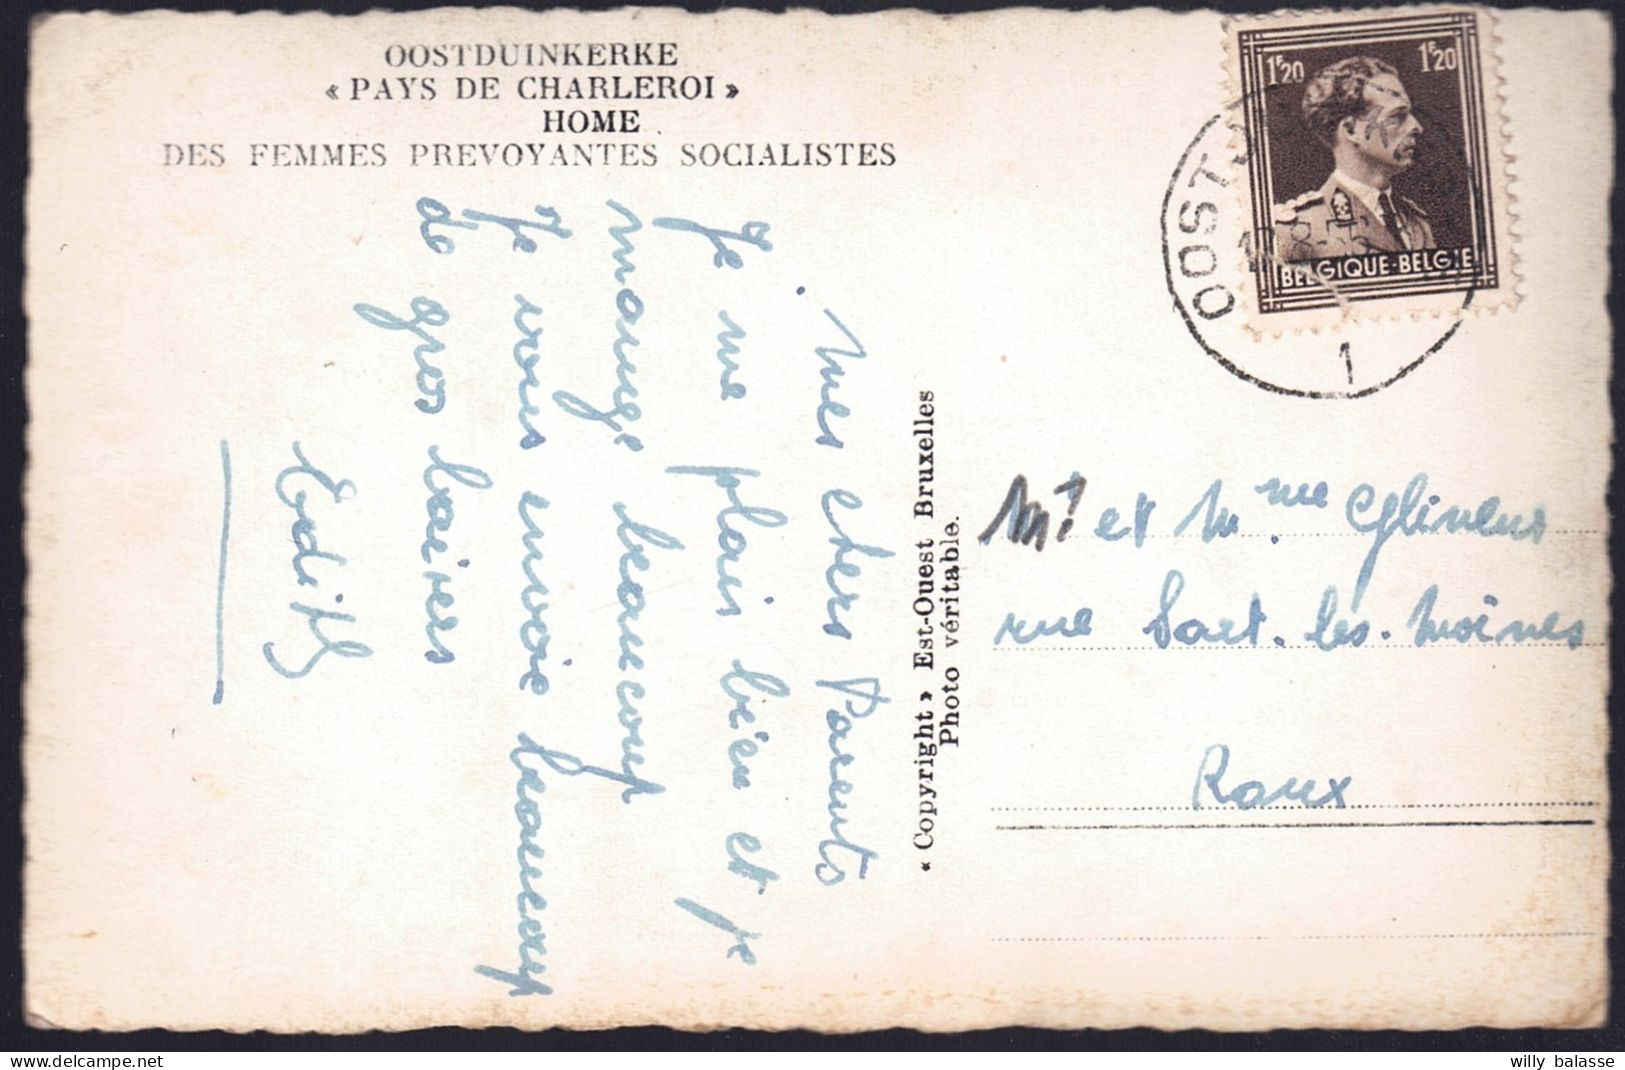 OOSTDUINKERKE
« PAYS DE CHARLEROI »
HOME
DES FEMMES PREVOYANTES SOCIALISTES
Mes chers Parents
Je me plais bien et je
mange beaucoup
Je vous envoie beaucoup
de gros baisers
Edith
« Copyright » Est-Ouest Bruxelles
Photo véritable.
1F20 1F20
BELGIQUE-BELGIE
OOSTD
1
Mr et Mme Glineur
rue Sart-les-Moines
Roux
delcampe.net
willy balasse